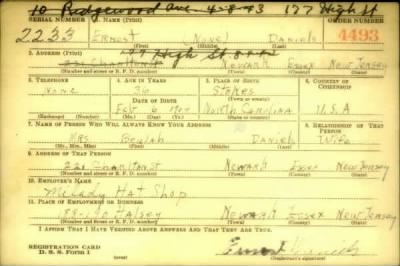 10 Ridgewood Ave 4-8-43 177 High St
SERIAL NUMBER 1. NAME (Print) ORDER NUMBER
2233 Ernest (None) Daniels 4493
(First) (Middle) (Last)
2. ADDRESS (Print)
High St
221 Charlton St Newark Essex New Jersey
(Number and street or R. F. D. number) (Town) (County) (State)
3. TELEPHONE 4. AGE IN YEARS 5. PLACE OF BIRTH 6. COUNTRY OF CITIZENSHIP
None 36 Stokes
DATE OF BIRTH (Town or county)
Feb 9 North Carolina U.S.A
(Exchange) (Number) (Mo.) (Day) (Yr.) (State or country)
7. NAME OF PERSON WHO WILL ALWAYS KNOW YOUR ADDRESS 8. RELATIONSHIP OF THAT PERSON
Mrs Beulah Daniels Wife
(Mr., Mrs., Miss) (First) (Middle) (Last)
9. ADDRESS OF THAT PERSON
221 Charlton St Newark Essex New Jersey
(Number and street or R. F. D. number) (Town) (County) (State)
10. EMPLOYER'S NAME
Milady Hat Shop
11. PLACE OF EMPLOYMENT OR BUSINESS
188-90 Halsey Newark Essex New Jersey
(Number and street or R. F. D. number) (Town) (County) (State)
I AFFIRM THAT I HAVE VERIFIED ABOVE ANSWERS AND THAT THEY ARE TRUE.
REGISTRATION CARD
D. S. S. Form 1 Ernest Daniels
(Registrant's signature)